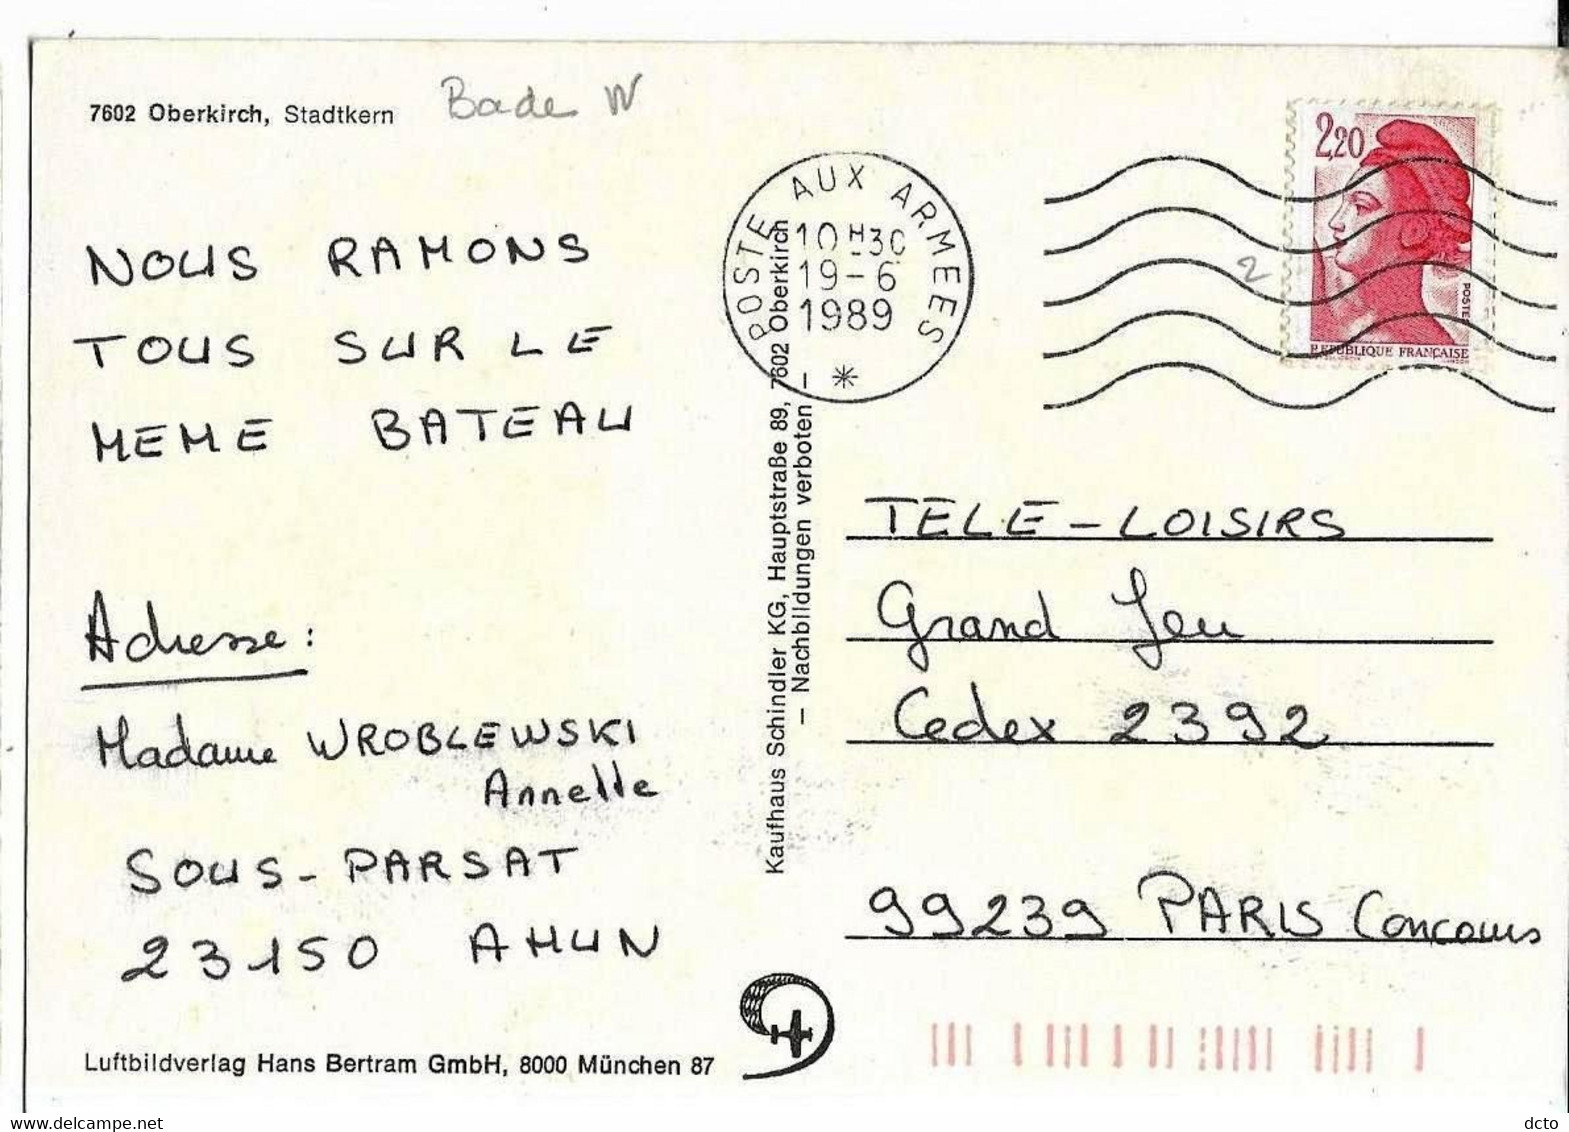 7602 Oberkirch, Stadtkern
Bade W
NOUS RAMONS
TOUS SUR LE
MEME BATEAU
Adresse :
Madame WROBLEWSKI
Annette
SOUS-PARSAT
23150 AHUN
Luftbildverlag Hans Bertram GmbH, 8000 München 87
Kaufhaus Schindler KG, Hauptstraße 89, 7602 Oberkirch
— Nachbildungen verboten —
POSTE AUX ARMEES
10 H30
19-6
1989
*
2,20
POSTES
REPUBLIQUE FRANÇAISE
2
TELE-LOISIRS
Grand Jeu
Cedex 2392
99239 PARIS Concours
www.delcampe.net
dcto